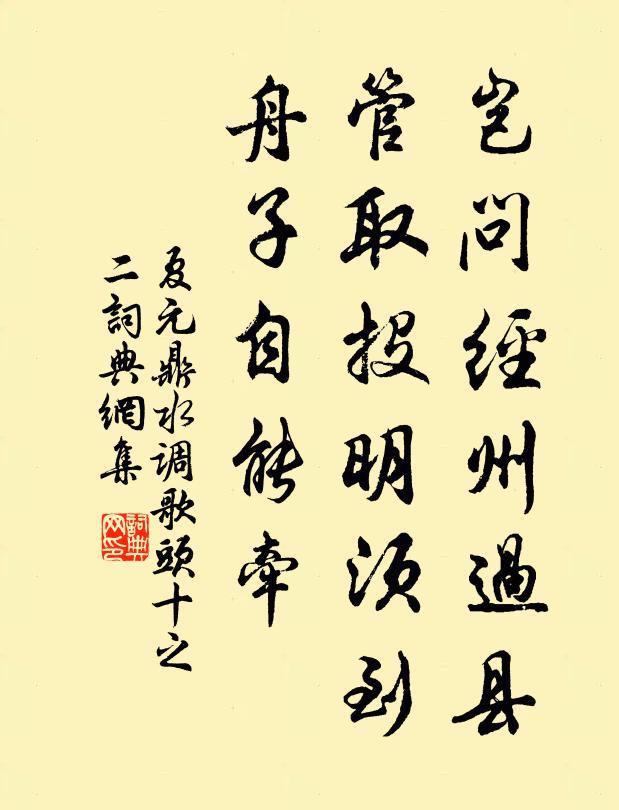 岂问经州過县
管取投明须到
舟子自能牵
夏元鼎水调歌頭十之
二詞典網集
詞典
网印